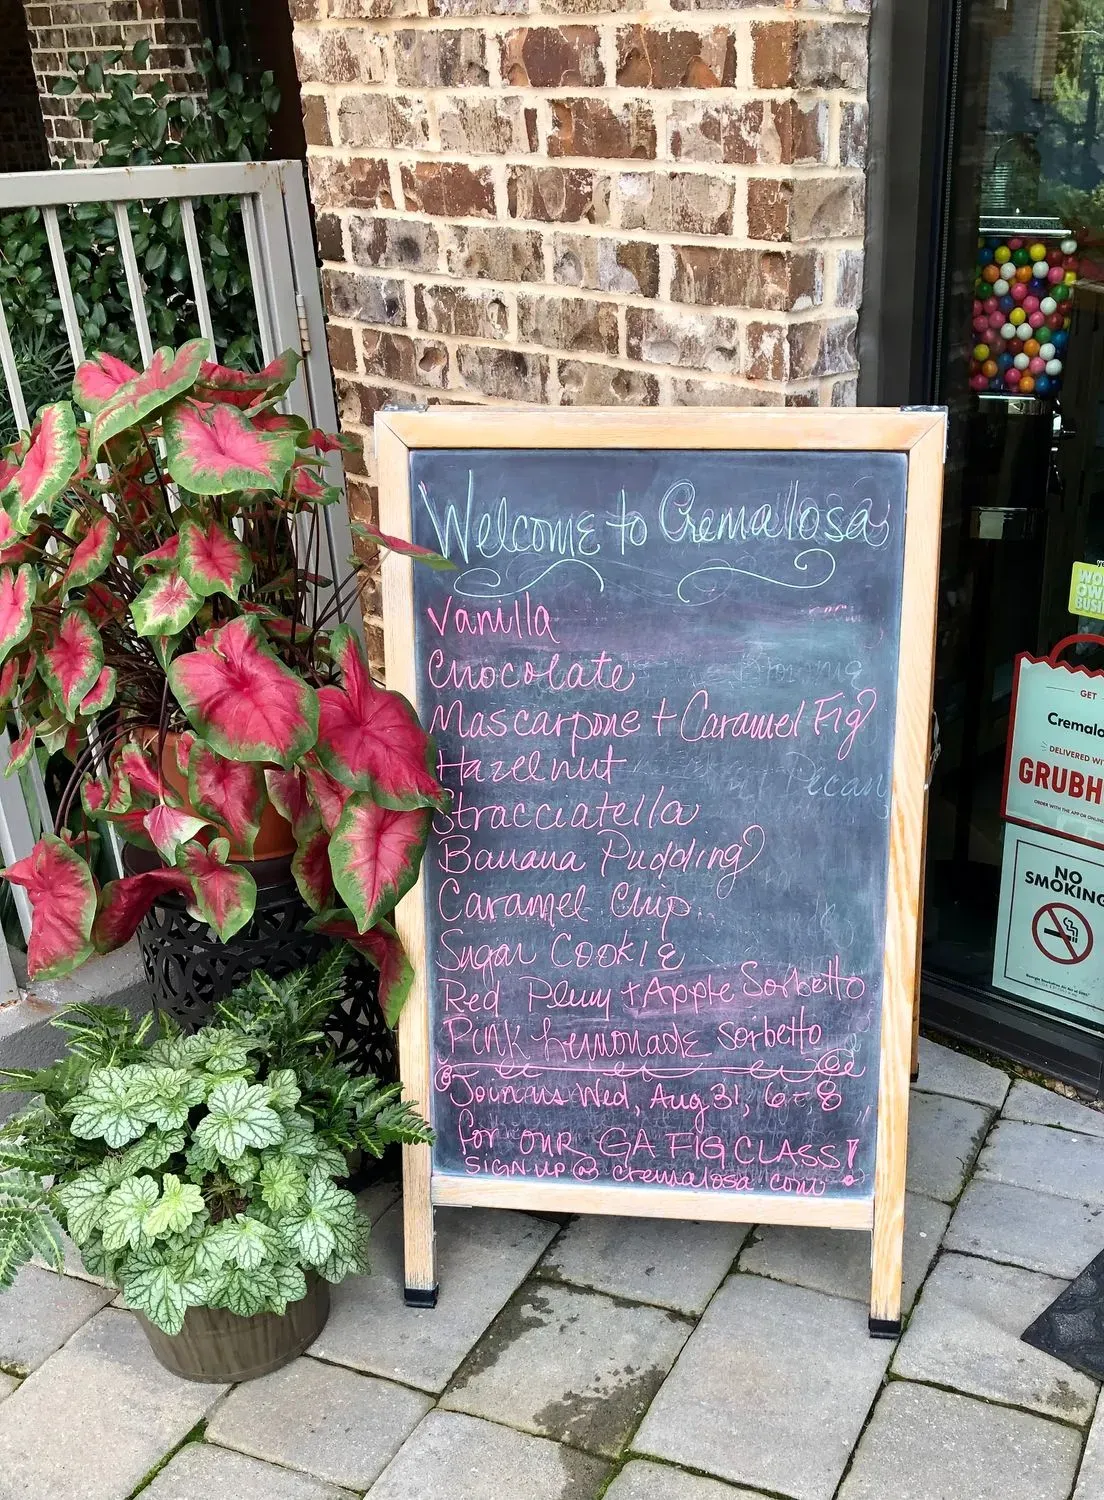 Welcome to Cremalosa
Vanilla
Chocolate
Mascarpone + Caramel Fig
Hazelnut
Stracciatella
Banana Pudding
Caramel Chip
Sugar Cookie
Red Plum + Apple Sorbetto
Pink Lemonade Sorbetto
Join us Wed, Aug 31, 6-8
for our GA FIG CLASS!
SIGN UP @ cremalosa.com
Pecan
GET
Cremalo
DELIVERED WI
GRUBH
ORDER WITH THE APP OR ONLINE
NO
SMOKING